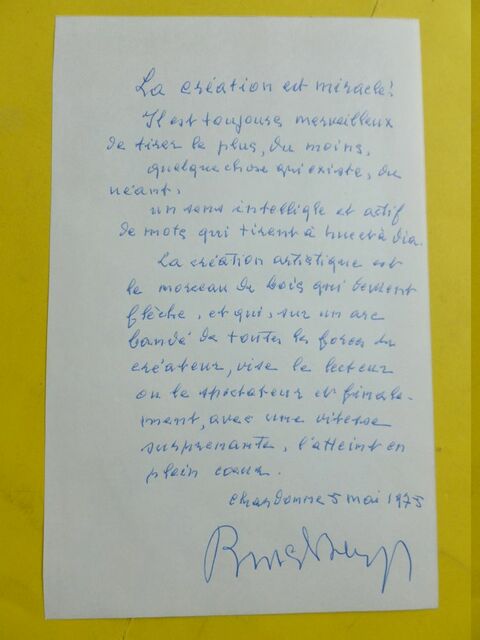 La création est miracle!
Il est toujours merveilleux
de tirer le plus, du moins,
quelque chose qui existe, du
néant,
un sens intelligle et actif
de mots qui tirent à hue et à dia.
La création artistique est
le morceau de bois qui devient
flèche, et qui, sur un arc
bandé de toutes les forces du
créateur, vise le lecteur
ou le spectateur et finale-
ment, avec une vitesse
surprenante, l'atteint en
plein coeur.
Chardonne 5 mai 1975